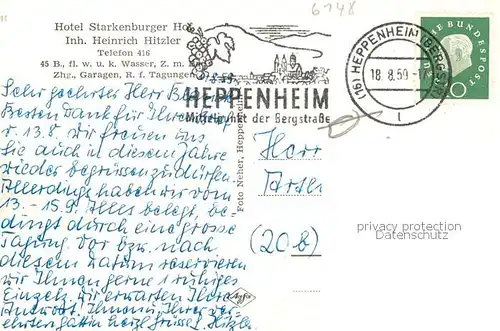 6148
Hotel Starkenburger Hof
Inh. Heinrich Hitzler
Telefon 416
45 B., fl. w. u. k. Wasser, Z. m.
Zhg., Garagen, R. f. Tagungen
1.8.59
HEPPENHEIM
Mittelpunkt der Bergstraße
(16) HEPPENHEIM (BERGSTR)
18.8.59
1
BUNDESPOST
Sehr geehrter Herr
Besten Dank für Ihre
v. 13.8. wir freuen uns
Sie auch in diesem Jahre
wieder begrüssen zu dürfen.
Allerdings haben wir vom
13.-15.9. Alles belegt, be
dingt durch eine grosse
Tagung. Vor bzw. nach
diesem Datum reservieren
wir Ihnen gerne 1 ruhiges
Einzelz. wir erwarten Ihre
Antwort. Ihnen, Ihrer ver-
ehrten Gattin herzl. Grüsse! Hitzler
Foto Neher, Heppenheim
Herr
(20b)
privacy protection
Datenschutz
Agfa